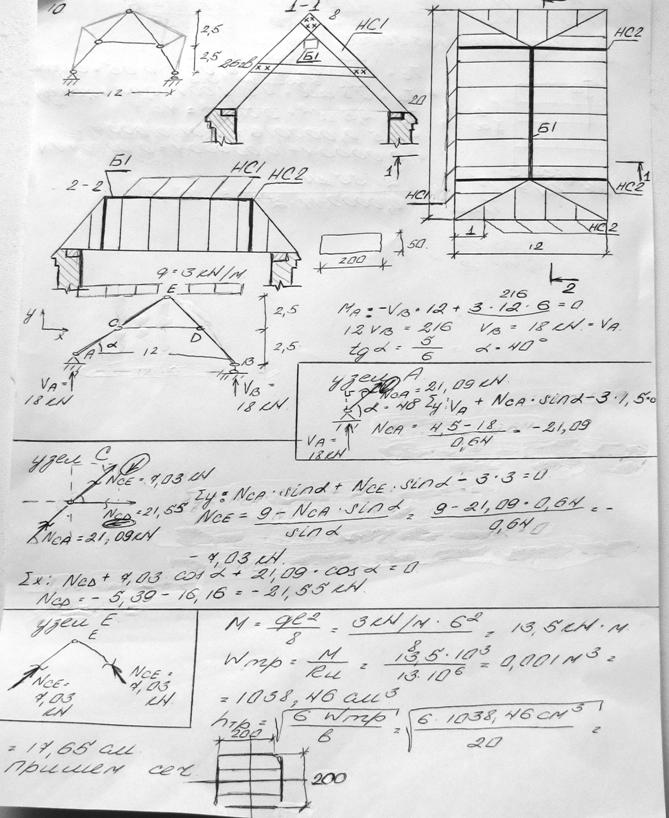 10
2,5
2,5
12
1-1
8
НС1
Б1
20
НС2
Б1
НС1
НС2
НС2
1
1
1
12
2
2-2
Б1
НС1
НС2
50
200
q=3 кН/м
E
y
x
C
D
A
α
12
B
2,5
2,5
VA=
18 кН
VB=
18 кН
216
MA: -VB·12 + 3·12·6 = 0
12VB = 216 VB = 18 кН = VA
tgα = 5/6 α = 40°
узел A
NCA = 21,09 кН
Σy: VA + NCA·sinα - 3·1,5=0
NCA = 4,5-18/0,64 = -21,09
VA=
18 кН
узел C
NCE = 7,03 кН
NCD = 21,55
NCA = 21,09 кН
Σy: NCA·sinα + NCE·sinα - 3·3 = 0
NCE = 9 - NCA·sinα/sinα = 9 - 21,09·0,64/0,64 = -
- 7,03 кН.
Σx: NCD + 7,03 cosα + 21,09·cosα = 0
NCD = - 5,39 - 16,16 = - 21,55 кН.
узел E
E
NCE=
7,03
кН
NCE=
7,03
кН
M = ql²/8 = 3 кН/м·6²/8 = 13,5 кН·м
Wтр = M/Rи = 13,5·10³/13·10⁶ = 0,001 м³ =
= 1038,46 см³
hтр = √6 Wтр/в = √6·1038,46 см³/20 =
= 17,65 см
примем сеч
200
200